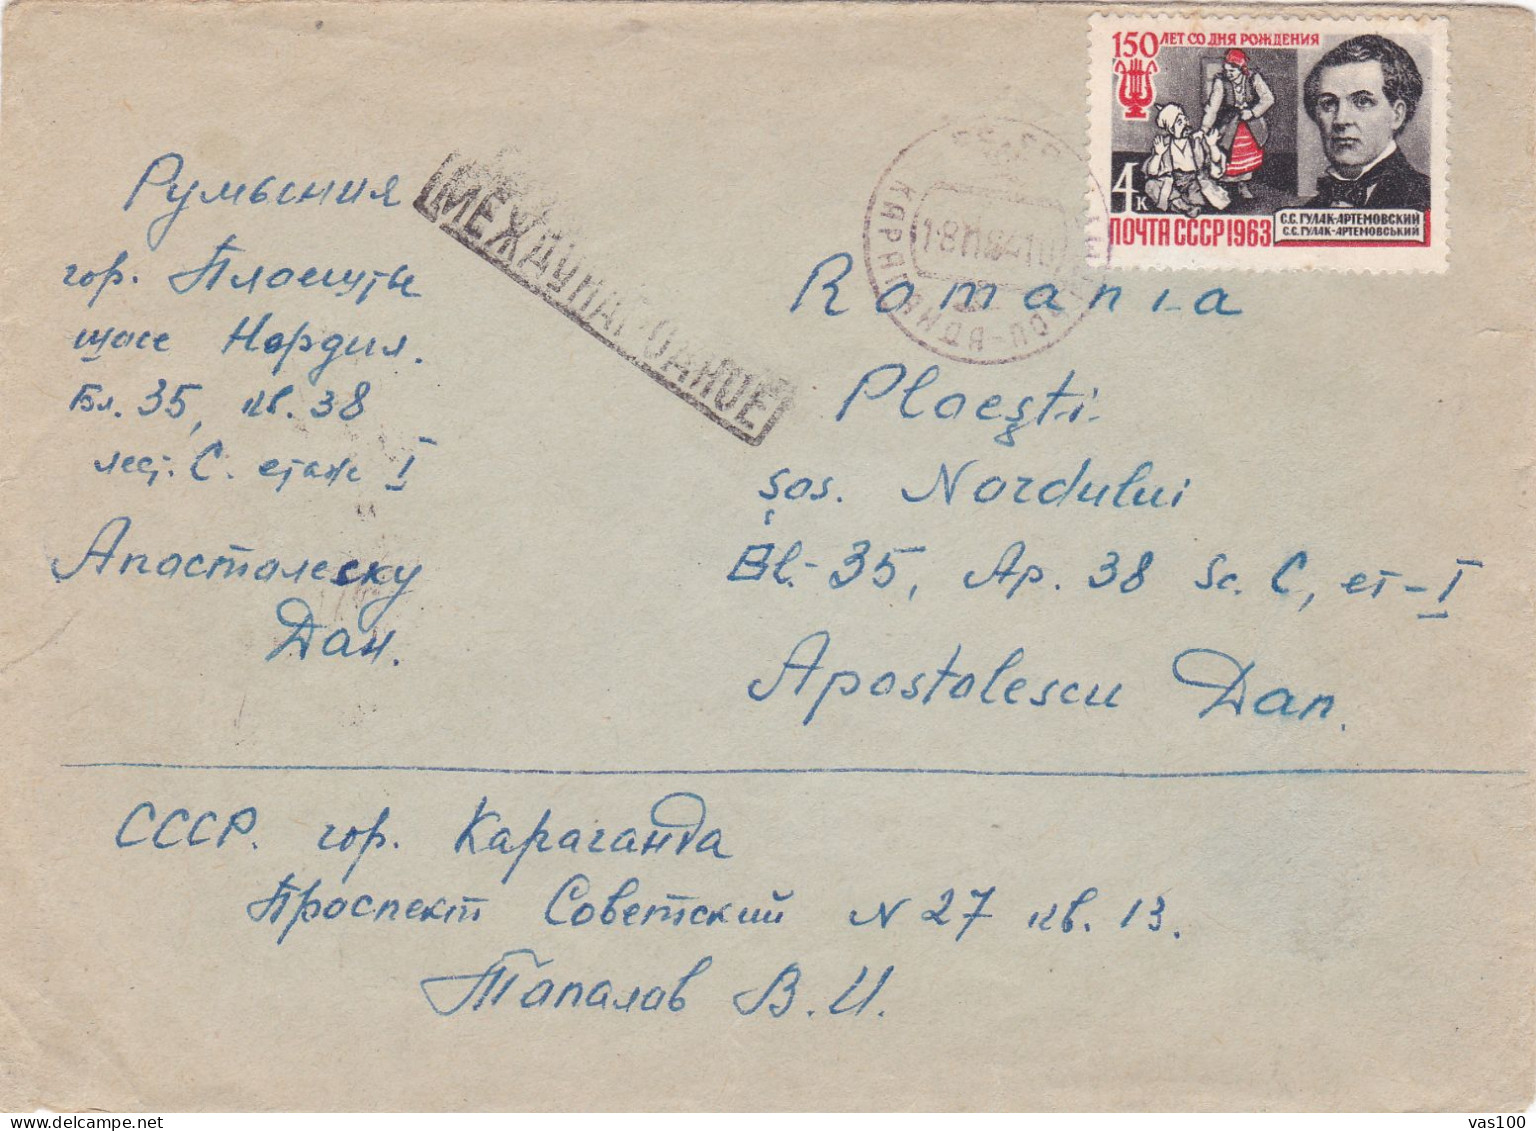 150 ЛЕТ СО ДНЯ РОЖДЕНИЯ
4 к
ПОЧТА СССР 1963
С.С. ГУЛАК-АРТЕМОВСКИЙ
С.С. ГУЛАК-АРТЕМОВСЬКИЙ
МЕЖДУНАРОДНОЕ
Румыния
гор. Плоешты
шосе Нордул.
Бл. 35, кв. 38
лест. С. етаж I
Апосталеску
Дан.
Romania
Ploeşti
şos. Nordului
Bl.-35, Ap. 38 Sc. C, et-I
Apostolescu Dan.
СССР. гор. Караганда
Проспект Советский N 27 кв. 13.
Тапалов В. И.
vas100